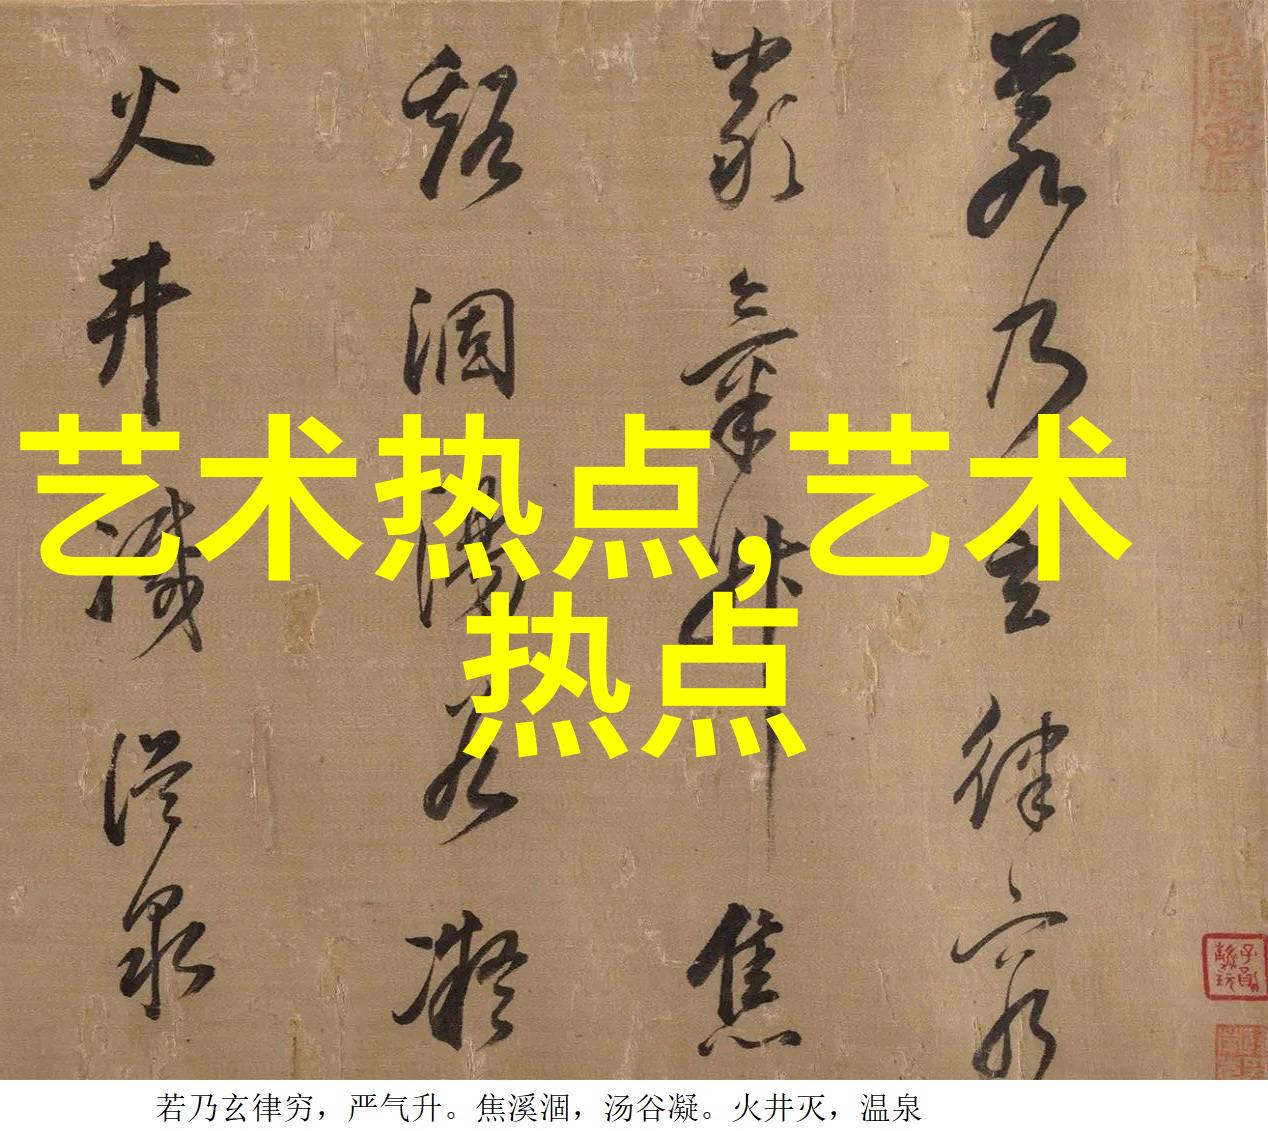 若乃玄律窮
嚴氣升焦
谿涸湯谷凝
火井滅溫泉
艺术热点,艺术
热点
若乃玄律穷，严气升。焦溪涸，汤谷凝。火井灭，温泉